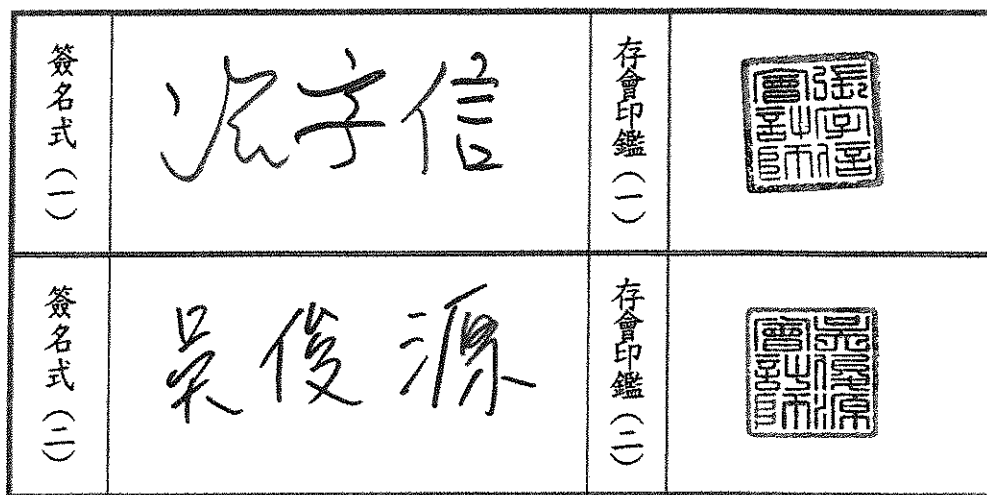 簽名式(一)
張字信
存會印鑑(一)
張字信會計師
簽名式(二)
吳俊源
存會印鑑(二)
吳俊源會計師